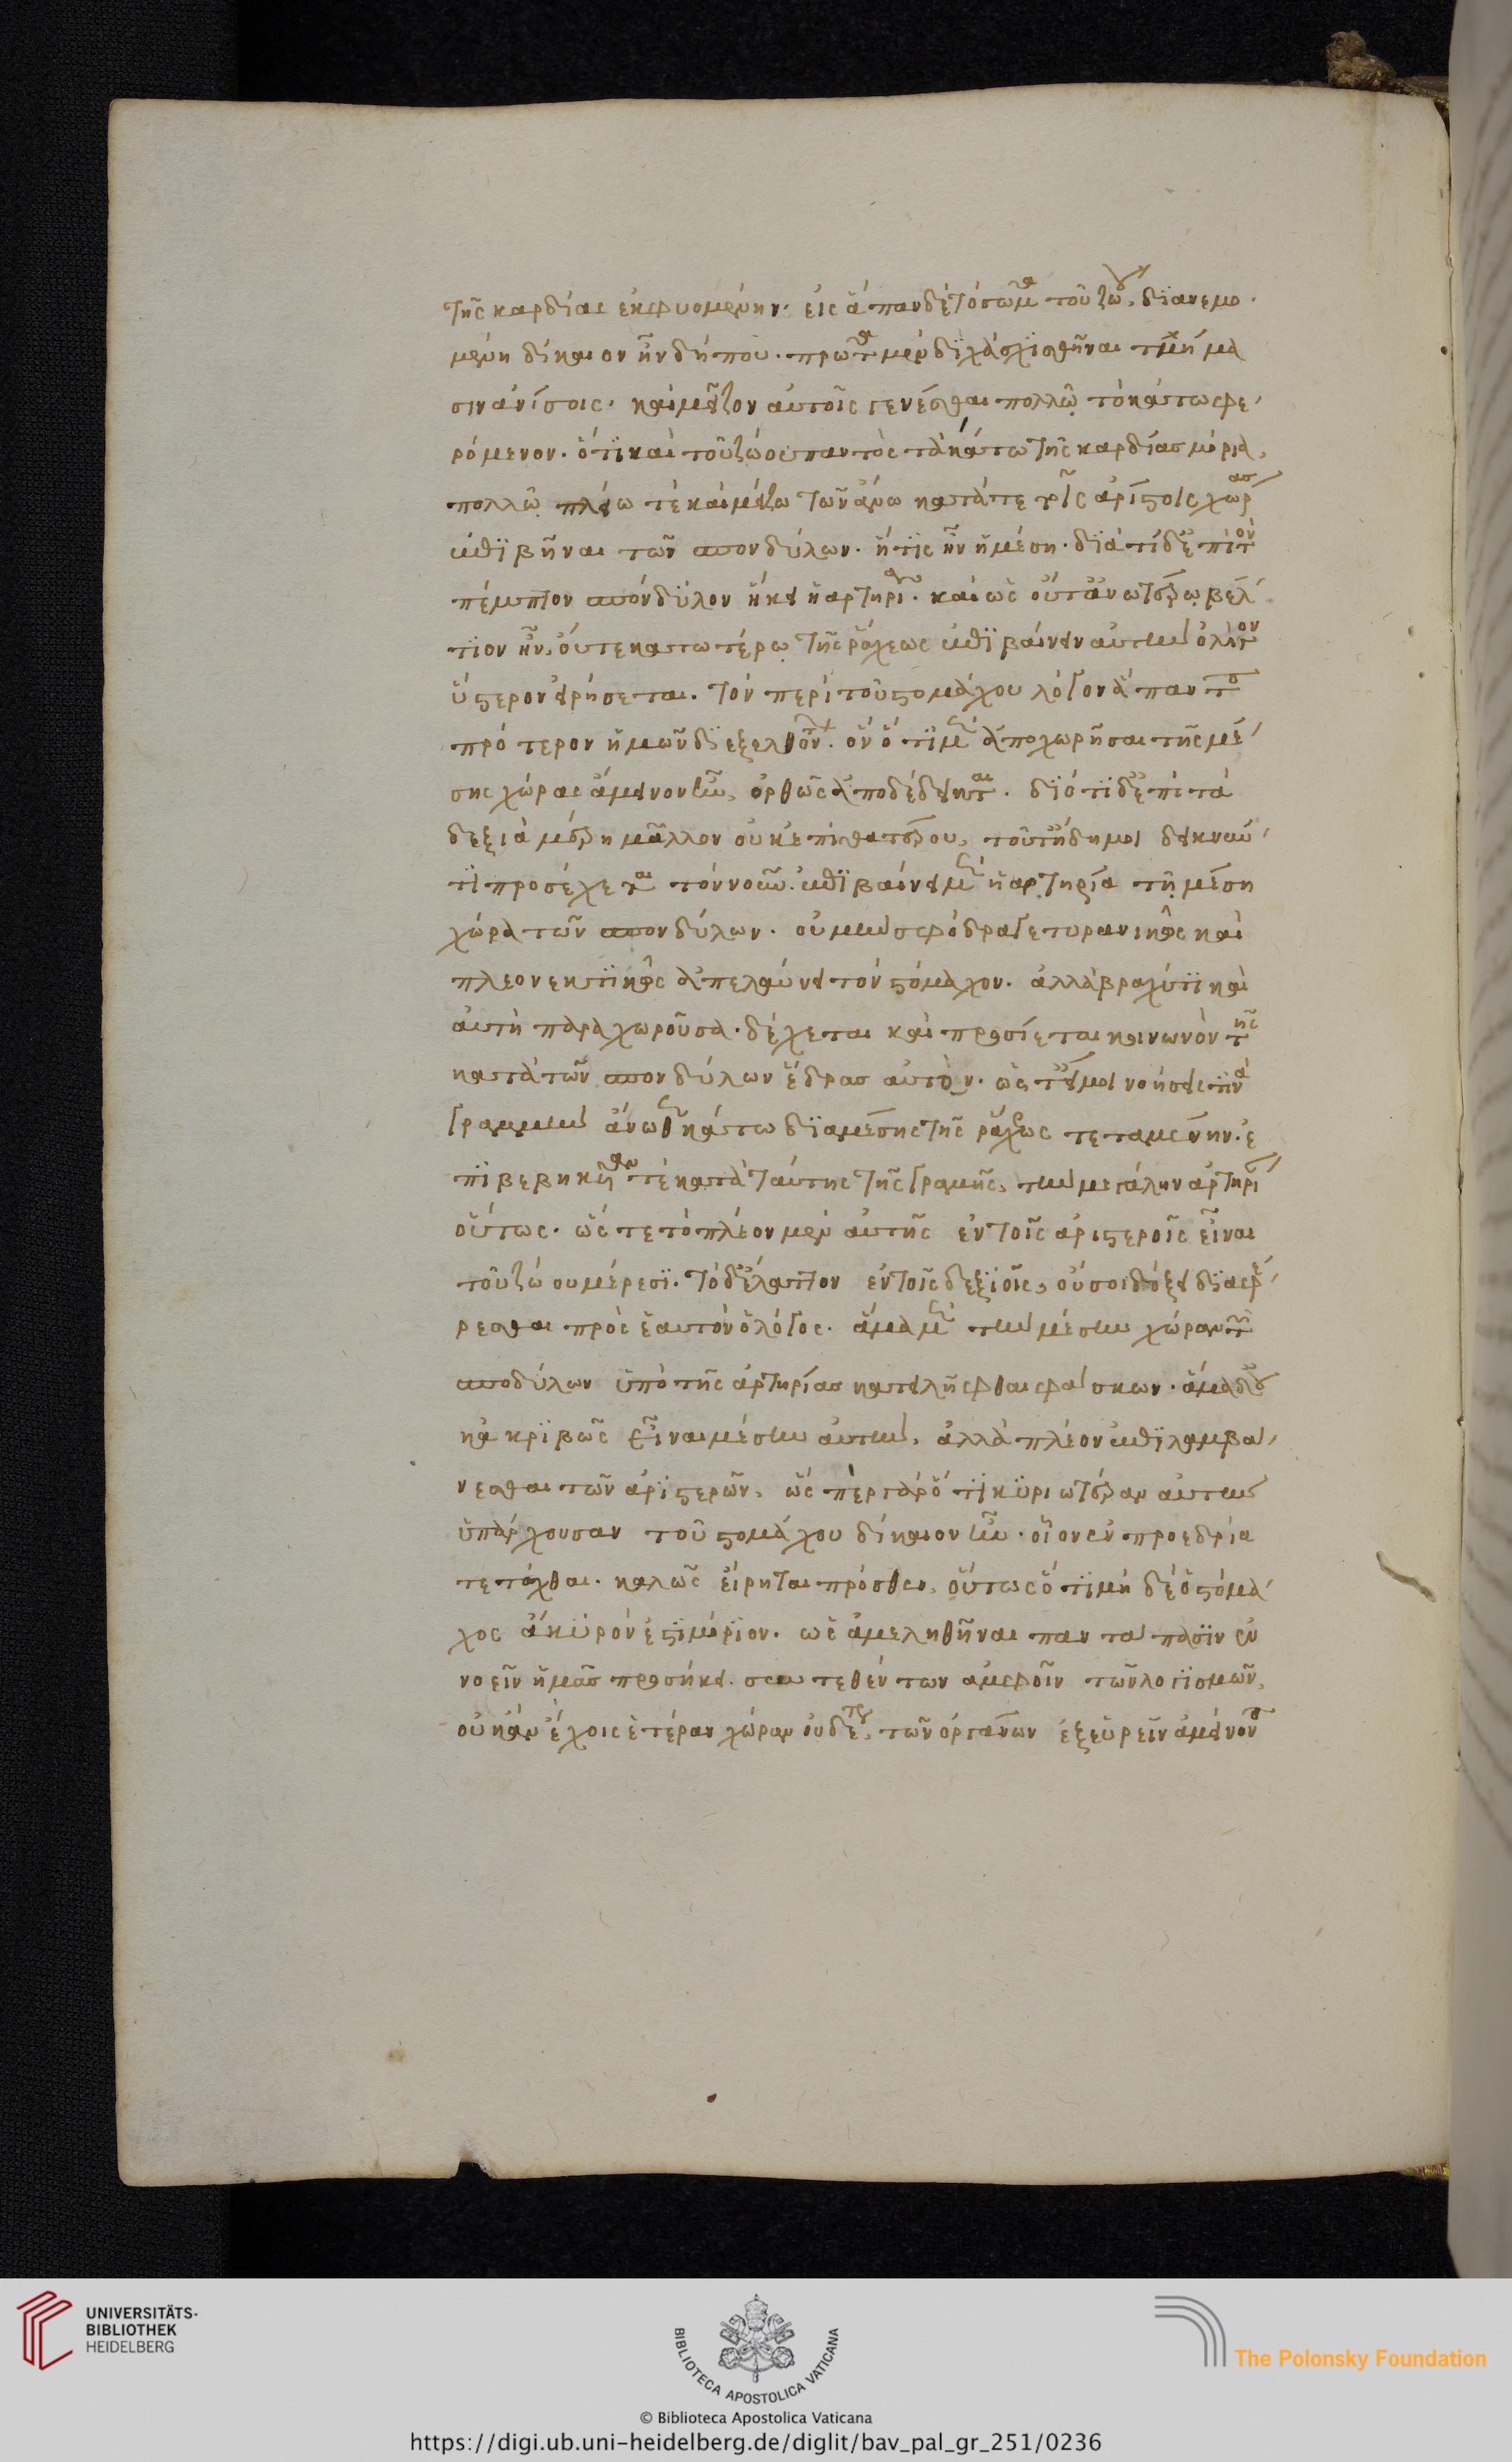 τῆς καρδίας ἐκφυομένην· εἰς ἅπαν δὲ τὸ σῶμα τοῦ ζώου διανεμο
μένη δίκαιον ἦν δήπου· πρῶτα μὲν δίχα σχισθῆναι τμήμα
σιν ἀνίσοις· καὶ μεῖζον αὐτοῖς γενέσθαι πολλῷ τὸ κάτω φε
ρόμενον· ὅτι καὶ τοῦ ζώου παντὸς τὰ κάτω τῆς καρδίας μόρια,
πολλῷ πλείω τὲ καὶ μείζω τῶν ἄνω κατά τε
ἐπιβῆναι τῶν σπονδύλων· ἥτις ἦν ἡ μέση· διὰ τί δ' ἐπὶ τὸν
πέμπτον σπόνδυλον ἥκει ἡ ἀρτηρία· καὶ ὡς οὔτ' ἀνωτέρω βέλ
τιον ἦν, οὔτε κατωτέρω τῆς ῥάχεως ἐπιβαίνειν αὐτὴν ὀλίγον
ὕστερον εἰρήσεται. τὸν περὶ τοῦ στομάχου λόγον ἅπαντα
πρότερον ἡμῶν διεξελθόντων· οὗ ὅτι μὲν ἀποχωρῆσαι τῆς μέ
σης χώρας ἄμεινον ἦν, ὀρθῶς ἀποδέδεικται· διότι δ' ἐπὶ τὰ
δεξιὰ μέρη μᾶλλον οὐκ ἐπὶ θάτερου, τοῦτ' ἤδη μοι δεικνύν
τι προσέχεται τὸν νοῦν· ἐπιβαίνει μὲν ἡ ἀρτηρία τῇ μέση
χώρα τῶν σπονδύλων· οὐ μὴν σφόδρα γε τυραννικῶς καὶ
πλεονεκτικῶς ἀπελαύνει τὸν στόμαχον· ἀλλὰ βραχύ τι καὶ
αὐτὴ παραχωροῦσα· δέχεται καὶ προσίεται κοινωνὸν τῆς
κατὰ τῶν σπονδύλων ἕδρας αὐτὸν· ὡς εἴ μοι νοήσεις τινὰ
γραμμὴν ἄνωθεν κάτω διὰ μέσης τῆς ῥάχεως τεταμένην· ἐ
πιβεβηκυῖαν τὲ κατὰ ταύτης τῆς γραμμῆς, τὴν μεγάλην ἀρτηρίαν
οὕτως· ὥστε τὸ πλέον μὲν αὐτῆς ἐν τοῖς ἀριστεροῖς εἶναι
τοῦ ζώου μέρεσι· τὸ δ' ἔλαττον ἐν τοῖς δεξιοῖς, οὔ σοι δόξει διαφέ
ρεσθαι πρὸς ἑαυτὸν ὁ λόγος· ἅμα μὲν τὴν μέσην χώραν τῶν
σποδύλων ὑπὸ τῆς ἀρτηρίας κατειλῆφθαι φάσκων· ἅμα δ' οὐ
κ' ἀκριβῶς εἶναι μέσην αὐτὴν, ἀλλὰ πλέον ἐπιλαμβά
νεσθαι τῶν ἀριστερῶν, ὥσπερ γὰρ ὅτι κυριωτέραν αὐτὴν
ὑπάρχουσαν τοῦ στομάχου δίκαιον ἦν· οἷον ἐν προεδρία
τετάχθαι· καλῶς εἴρηται πρόσθεν, οὕτως ὅτι μὴ δὲ ὁ στόμα
χος ἄκυρόν ἐστι μόριον· ὡς ἀμεληθῆναι παντάπασιν ἐν
νοεῖν ἡμᾶς προσήκει· συντεθέντων ἀμφοῖν τῶν λογισμῶν,
οὐκ ἂν ἔχοις ἑτέραν χώραν οὐδετέρου τῶν ὀργάνων ἐξευρεῖν ἀμείνονα
UNIVERSITÄTS-
BIBLIOTHEK
HEIDELBERG
BIBLIOTECA APOSTOLICA VATICANA
The Polonsky Foundation
© Biblioteca Apostolica Vaticana
https://digi.ub.uni-heidelberg.de/diglit/bav_pal_gr_251/0236